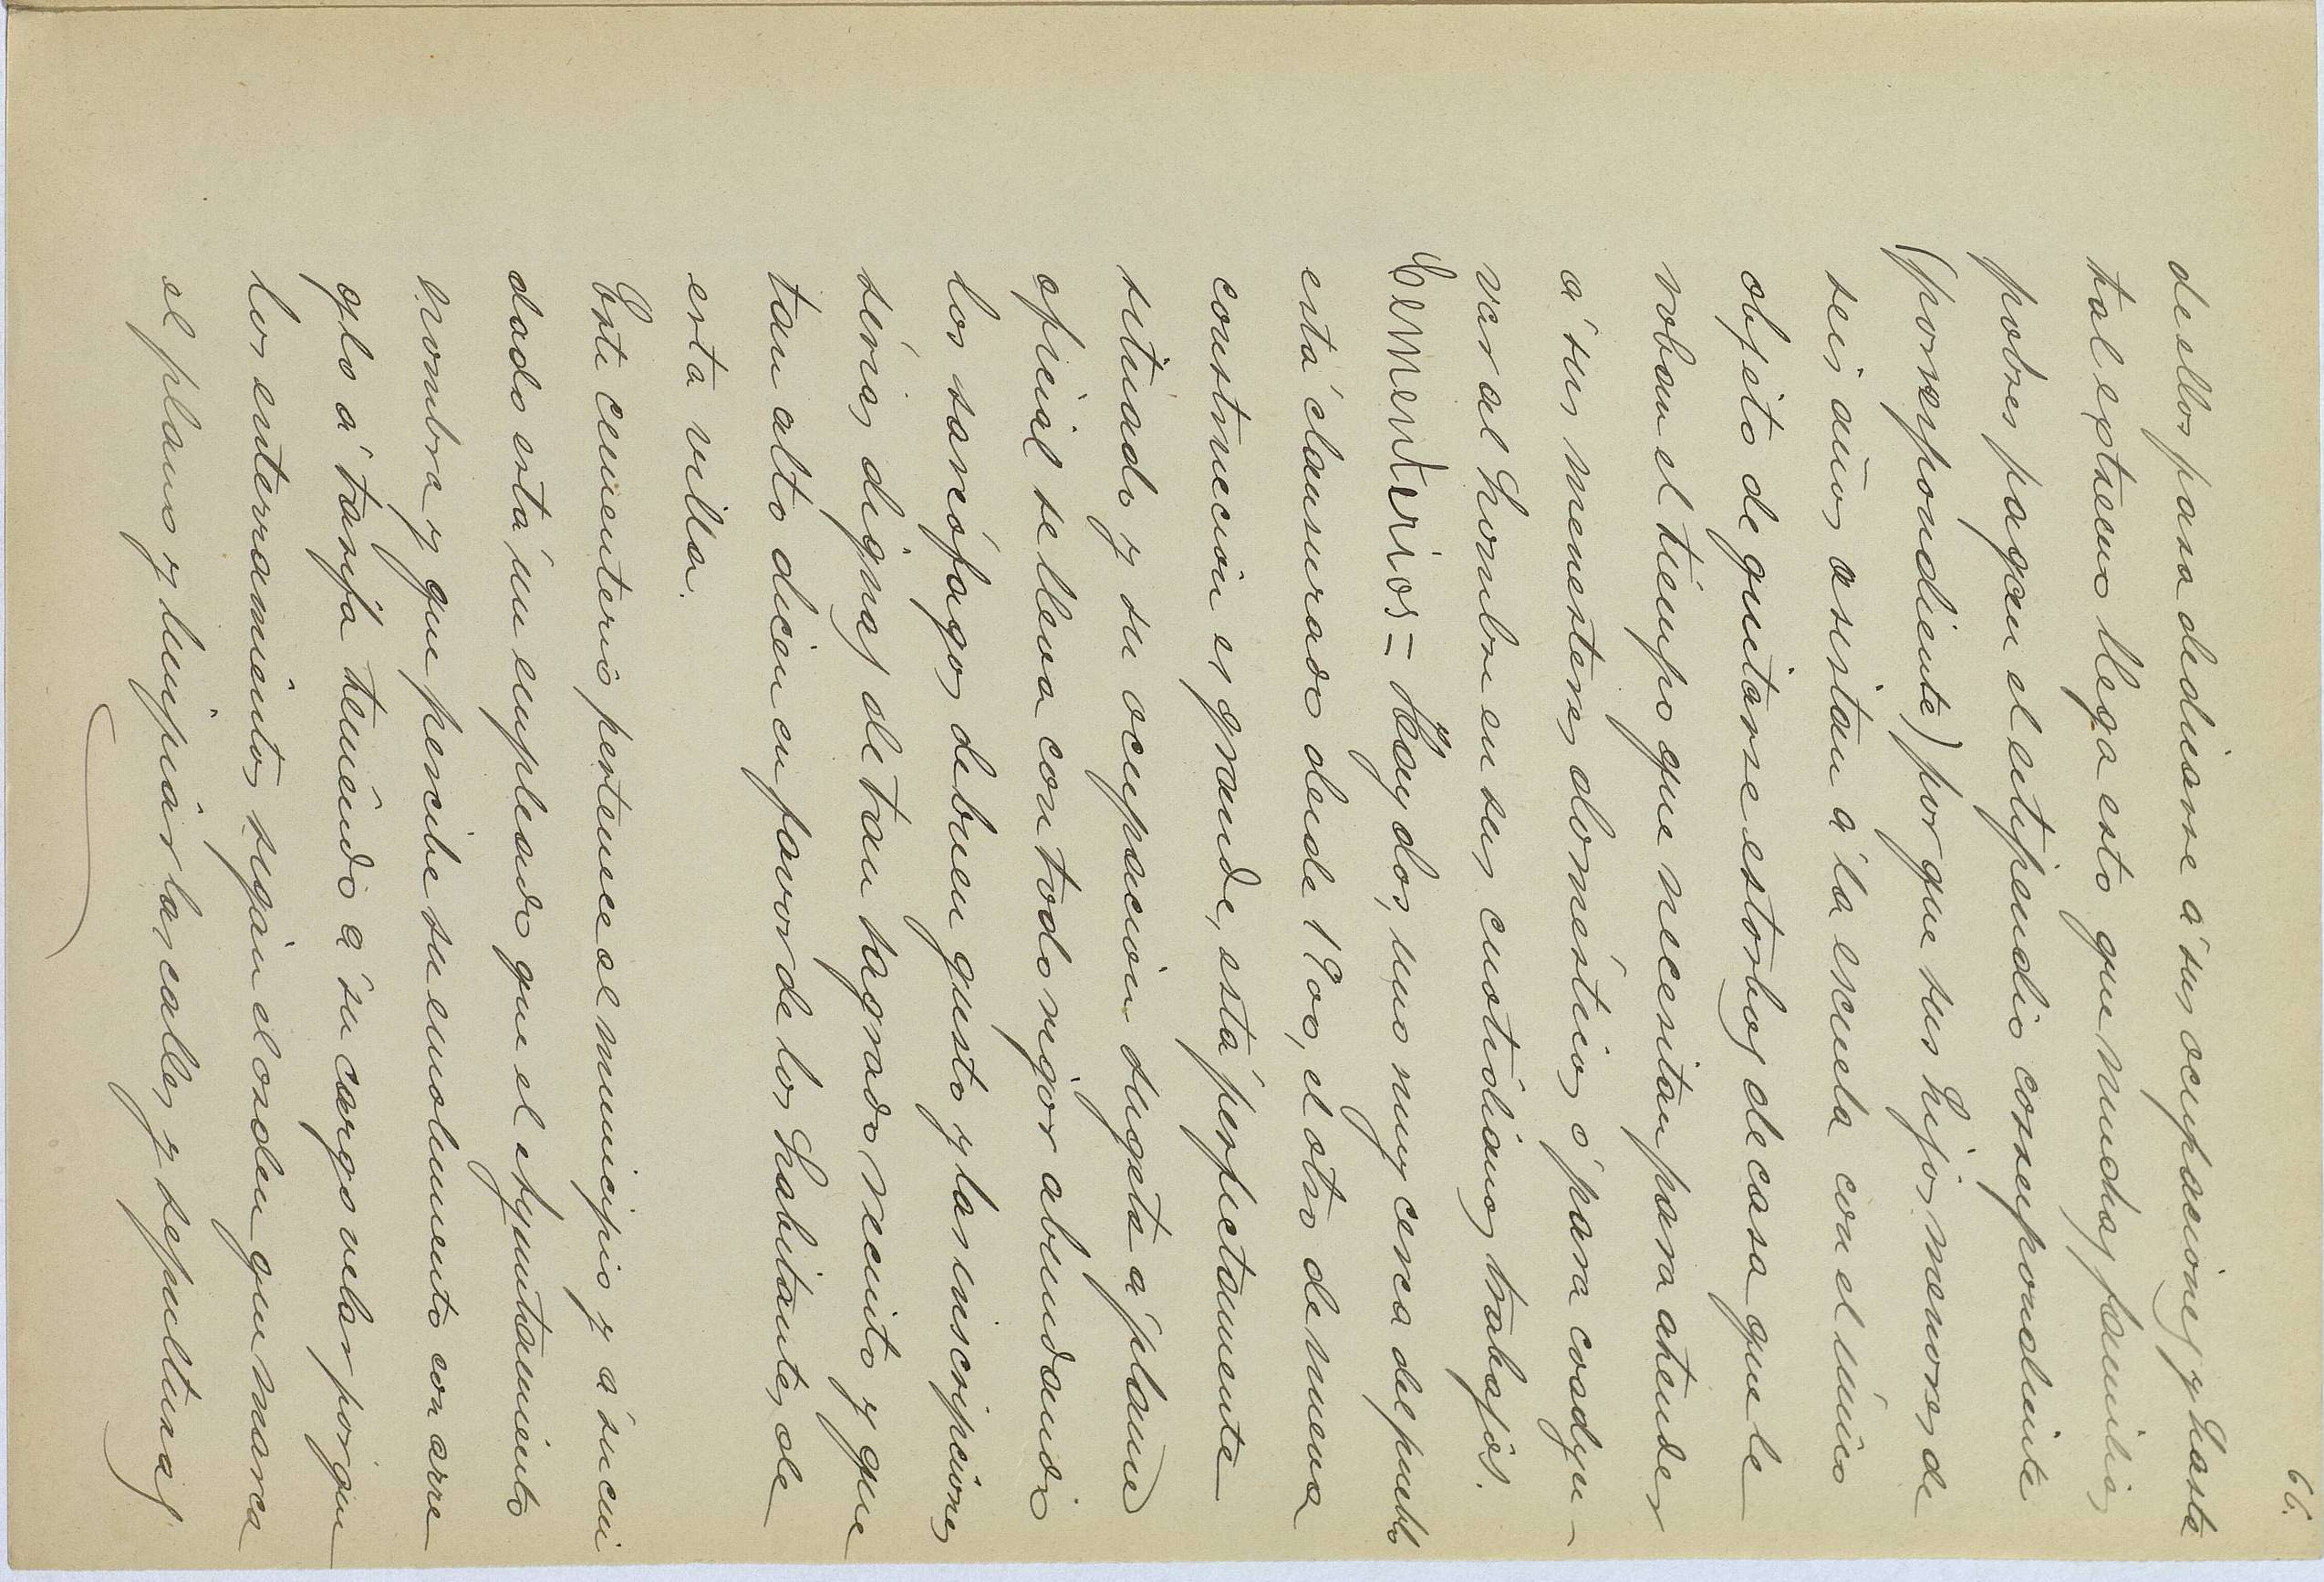 66.
de ellos para dedicarse á sus ocupaciones y hasta
tal extremo llega esto que muchas familias
pobres pagan el estipendio correspondiente
(porrespondiente) por que sus hijos menores de
seis años asistan á la escuela con el único
objeto de quitarse estorbos de casa que le
roban el tiempo que necesitan para atender
á sus menesteres domésticos ó para coadyu-
var al hombre en sus cuotidianos trabajos.
Cementerios = Hay dos, uno muy cerca del pueblo
está clausurado desde 1900, el otro de nueva
construccion es grande, está perfectamente
situado y su ocupacion sugeta á plano
oficial se lleva con todo rigor abundando
los sarcófagos de buen gusto y las inscripciones
sérias dignas de tan sagrado recinto y que
tan alto dicen en favor de los habitantes de
esta villa.
Este cementerio pertenece al municipio y á su cui
dado está un empleado que el Ayuntamiento
nombra y que percibe su emolumento con arre
glo á tarifa teniendo á su cargo velar porque
los enterramientos sigan el orden que marca
el plano y limpiar las calles y sepulturas